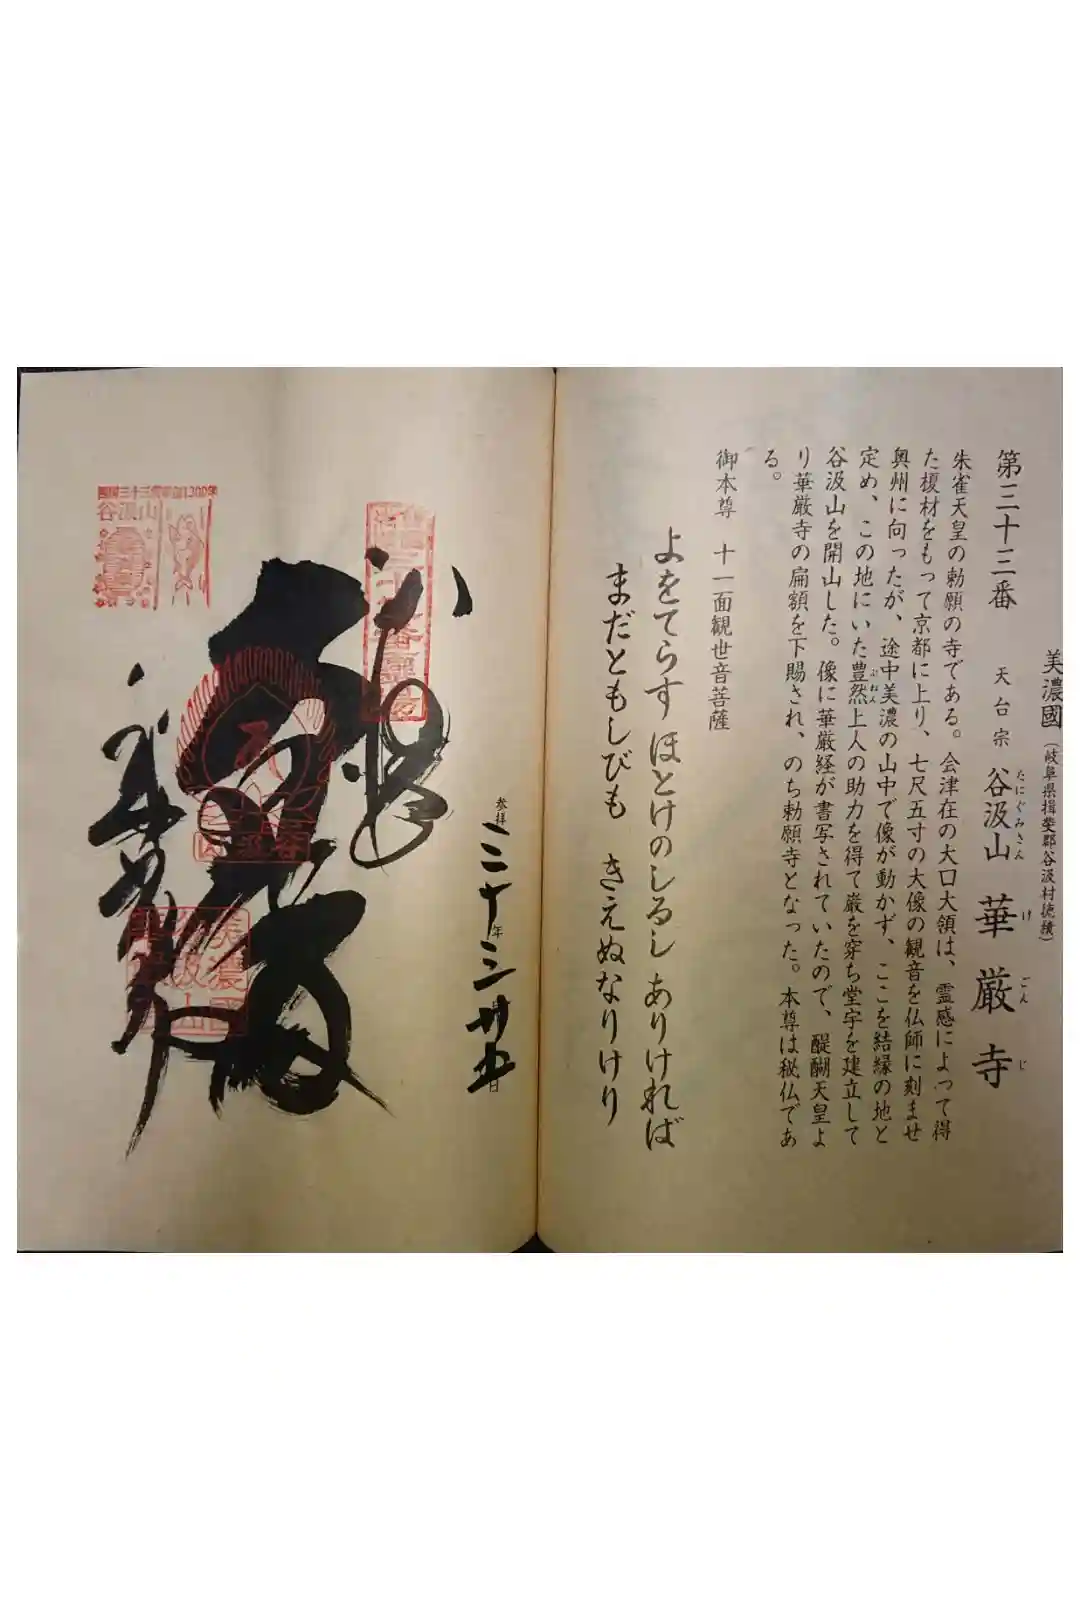 美濃國(岐阜県揖斐郡谷汲村徳積)
第三十三番 天台宗 谷汲山 華厳寺
たにぐみさん けごんじ
朱雀天皇の勅願の寺である。会津在の大口大領は、霊感によって得
た榎材をもって京都に上り、七尺五寸の大像の観音を仏師に刻ませ
奥州に向ったが、途中美濃の山中で像が動かず、ここを結縁の地と
定め、この地にいた豊然上人の助力を得て巌を穿ち堂宇を建立して
ぶねん
谷汲山を開山した。像に華厳経が書写されていたので、醍醐天皇よ
り華厳寺の扁額を下賜され、のち勅願寺となった。本尊は秘仏であ
る。
御本尊 十一面観世音菩薩
よをてらす ほとけのしるし ありければ
まだともしびも きえぬなりけり
参拝 三十年三月廿五日
奉拝
谷汲山
美濃國
谷汲山
華厳寺